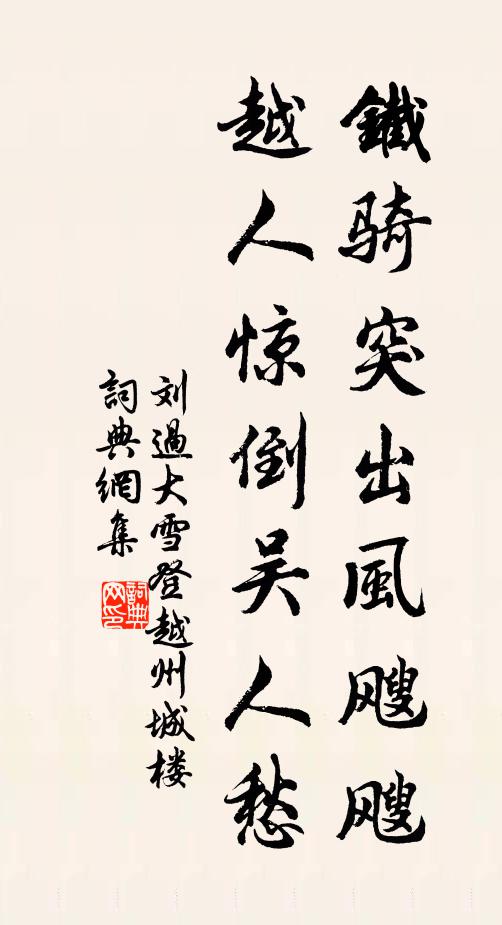 鐵骑突出風飕飕
越人惊倒吴人愁
刘過大雪登越州城楼
詞典網集
詞典网印